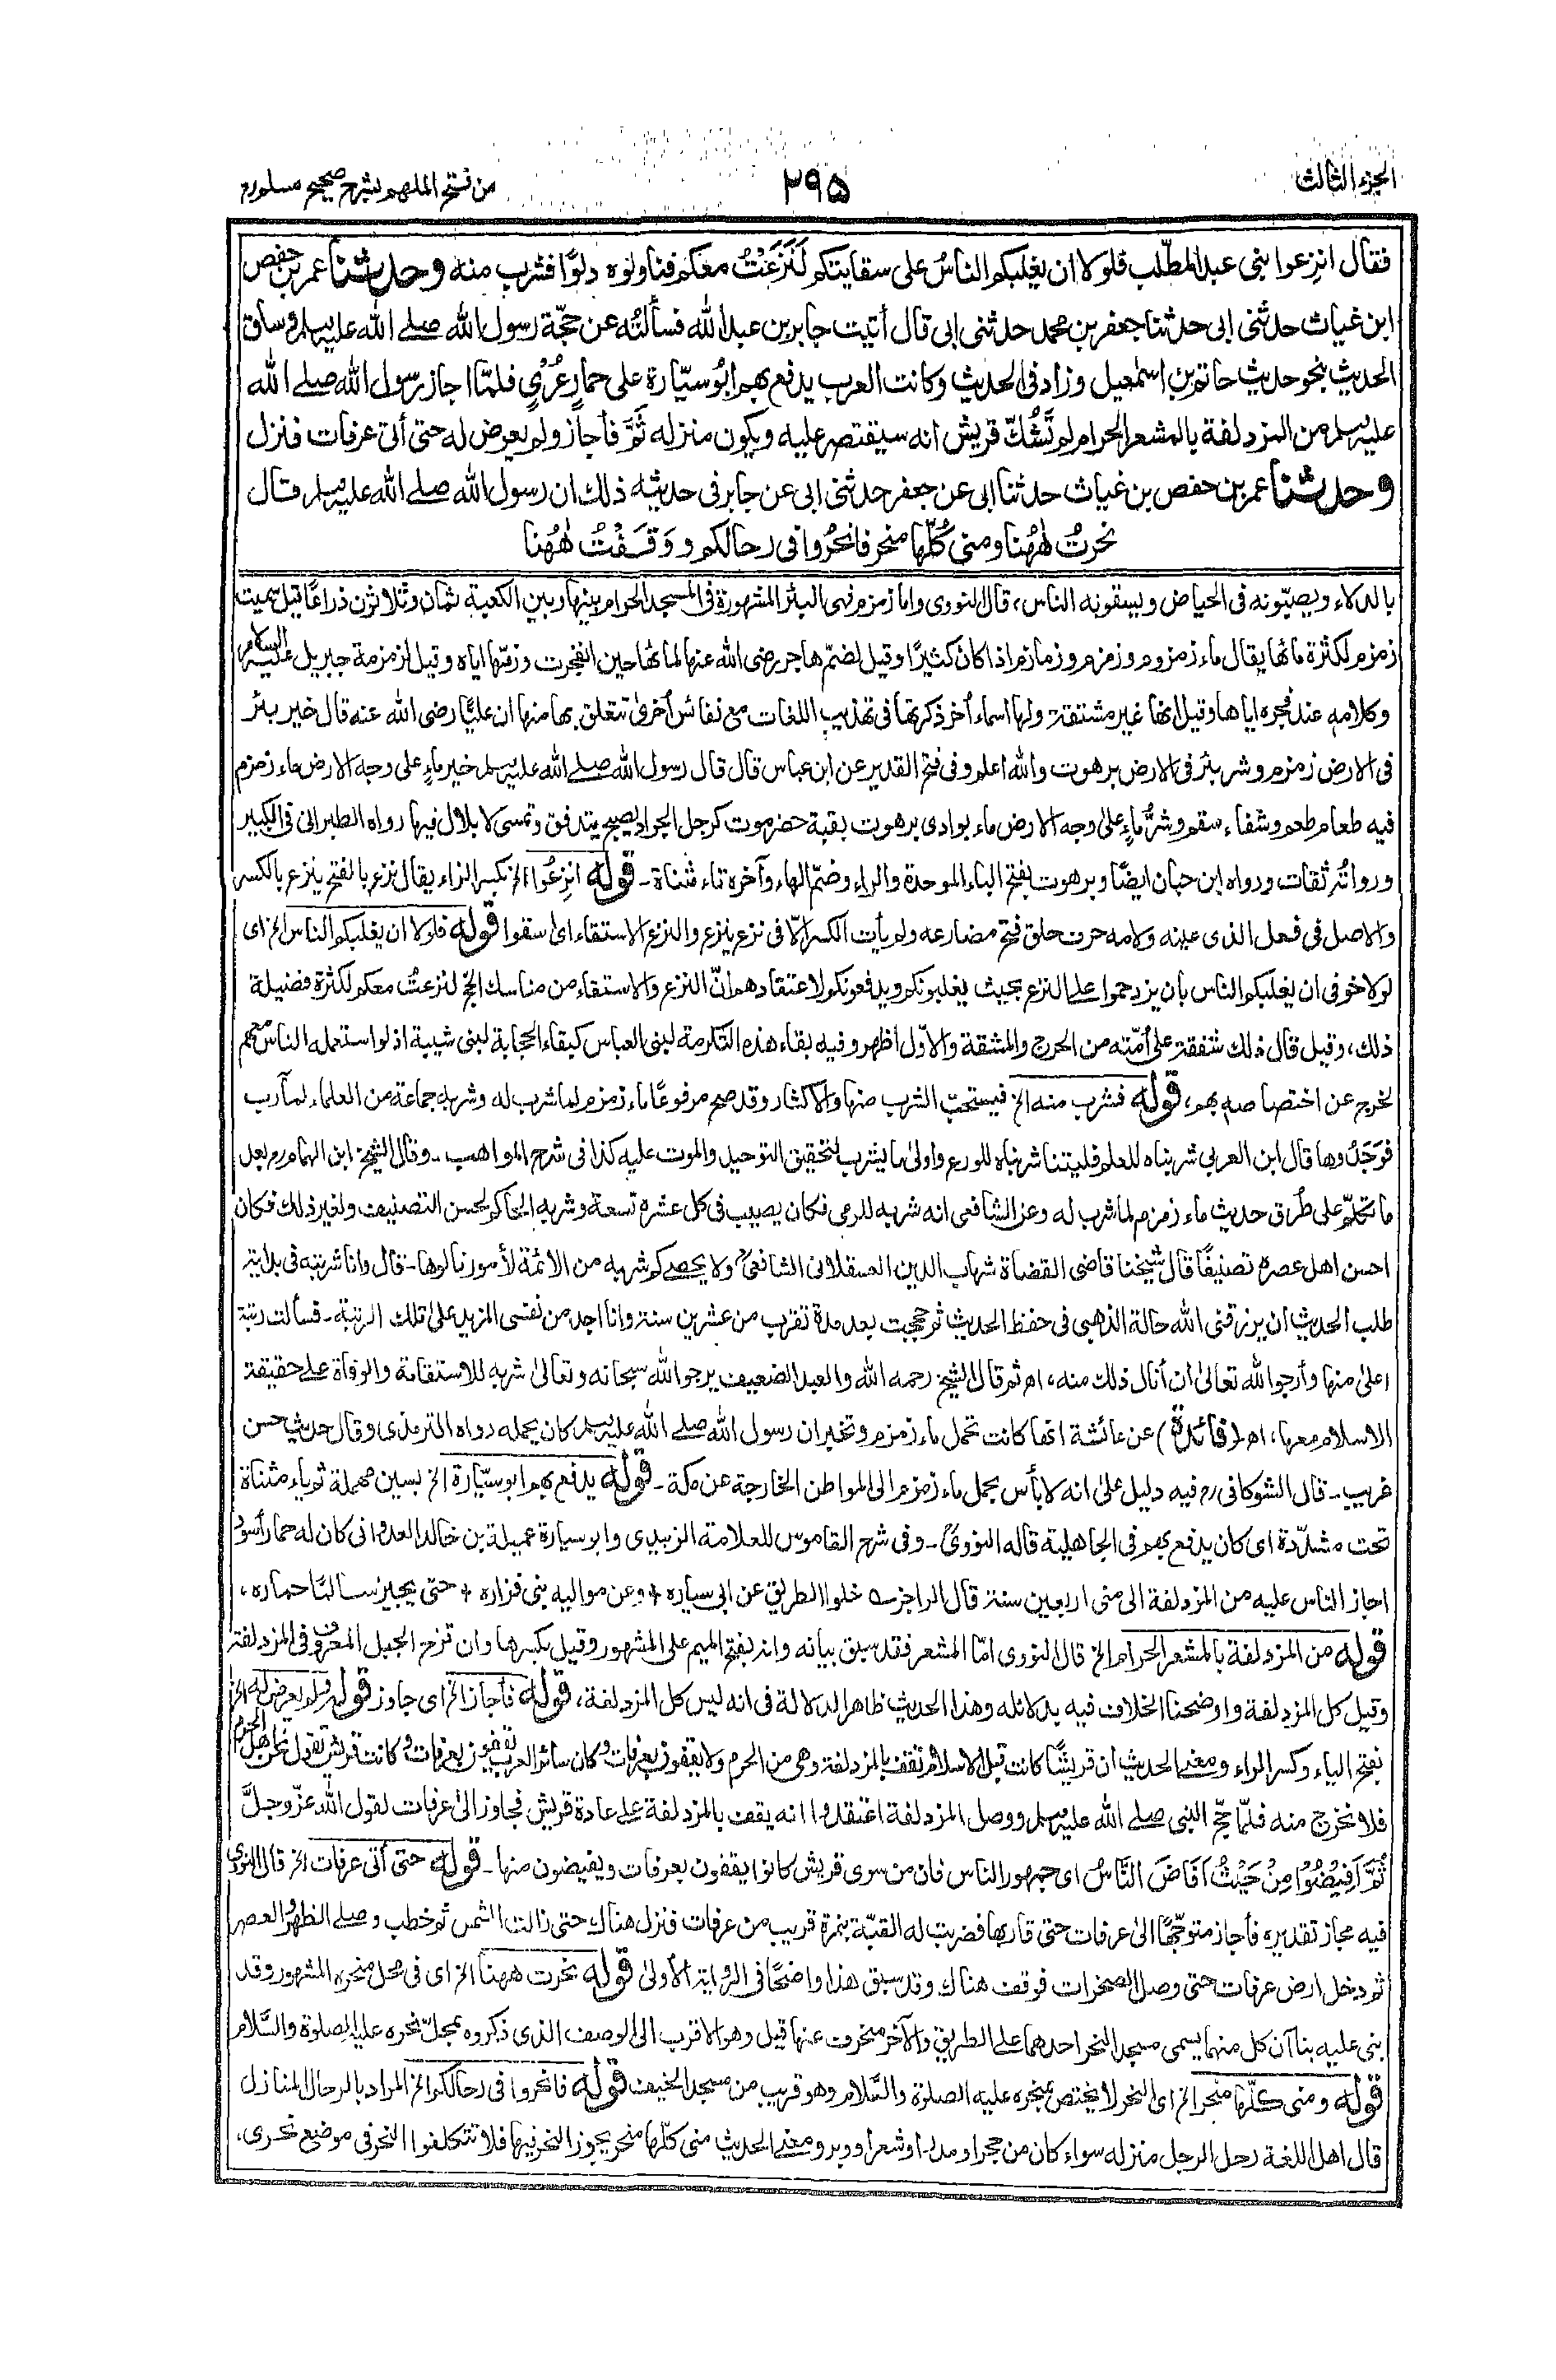 الجزء الثالث
٢٩٥
من فتح الملهم بشرح صحيح مسلم رم
فقال انزِعوا بنى عبد المطّلب فلولا ان يغلبكم الناسُ على سقايتكم لَنَزَعْتُ معكم فناولوه دلوًا فشرب منه وحدثنا عمر بن حفص
ابن غياث حدثنى ابى حدثنا جعفر بن محمد حدثنى ابى قال أتيت جابر بن عبد الله فسألتُه عن حجّة رسول الله صلى الله عليه وسلم وساق
الحديث بنحو حديث حاتم بن اسمٰعيل وزاد فى الحديث وكانت العرب يدفع بهم ابُو سيّارة على حمارٍ عُرْيٍ فلمّا اجاز رسول الله صلى الله
عليه وسلم من المزدلفة بالمشعر الحرام لم تَشُكّ قريش انه سيقتصر عليه ويكون منزله ثَمَّ فأجاز ولم يعرض له حتى أتى عرفات فنزل
وحدثنا عمر بن حفص بن غياث حدثنا ابى عن جعفر حدثنى ابى عن جابر فى حديثه ذلك ان رسول الله صلى الله عليه وسلم قال
نحرتُ هٰهُنا ومنى كُلّها منحر فانحَرُوا فى رحالكم ووَقَفْتُ هٰهُنا
بالدلاء ويصبّونه فى الحياض ويسقونه الناس، قال النووى واما زمزم فهى البئر المشهورة فى المسجد الحرام بينها وبين الكعبة ثمان وثلاثون ذراعًا قيل سميت
زمزم لكثرة مائها يقال ماء زمزوم وزمزم وزمازم اذا كان كثيرًا وقيل لضمّ هاجر رضى الله عنها لمائها حين انفجرت وزمّها اياه وقيل لزمزمة جبريل عليه السلام
وكلامه عند فجره اياها وقيل انها غير مشتقة ولها اسماء أخر ذكرتها فى تهذيب اللغات مع نفائس أخرىٰ تتعلق بها منها ان عليًّا رضى الله عنه قال خير بئر
فى الارض زمزم وشر بئر فى الارض برهوت والله اعلم وفى فتح القدير عن ابن عباس قال قال رسول الله صلى الله عليه وسلم خير ماءٍ على وجه الارض ماء زمزم
فيه طعام طعم وشفاء سقم وشرُّ ماءٍ علىٰ وجه الارض ماء بوادى برهوت بقبة حضرموت كرجل الجراد يصبح يتدفق وتمسى لا بلال فيها رواه الطبرانى فى الكبير
ورواتُه ثقات ورواه ابن حبان ايضًا وبرهوت بفتح الباء الموحدة والراء وضمّ الهاء وآخره تاء مثناة۔ قوله انزِعُوا الخ بكسر الزاء يقال نزع بالفتح ينزع بالكسر
والاصل فى فعل الذى عينه ولامه حرف حلق فتح مضارعه ولم يأت الكسر الّا فى نزع ينزع والنزع الاستقاء اى اسقوا قوله فلولا ان يغلبكم الناس الخ اى
لولا خوفى ان يغلبكم الناس بأن يزدحموا على النزع بحيث يغلبونكم ويدفعونكم لاعتقادهم انّ النزع والاستقاء من مناسك الحج لنزعتُ معكم لكثرة فضيلة
ذلك، وقيل قال ذلك شفقة على أمّته من الحرج والمشقة والاوّل اظهر وفيه بقاء هذه التكرمة لبنى العباس كبقاء الحجابة لبنى شيبة اذ لو استعمله الناس معهم
لخرج عن اختصاصه بهم، قوله فشرب منه الخ فيستحبّ الشرب منها والاكثار وقد صح مرفوعًا ماء زمزم لما شرب له وشربه جماعة من العلماء لمآرب
فوَجَدُوها قال ابن العربى شربناه للعلم فليتنا شربناه للورع واولىٰ ما يشرب لتحقيق التوحيد والموت عليه كذا فى شرح المواهب۔ وقال الشيخ ابن الهمام رم بعد
ما تكلّم على طُرق حديث ماء زمزم لما شرب له وعن الشافعى انه شربه للرمى فكان يصيب فى كل عشرة تسعة وشربه الحاكم لحسن التصنيف ولغير ذلك فكان
احسن اهل عصره تصنيفًا قال شيخنا قاضى القضاة شهاب الدين العسقلانى الشافعىؒ ولا يحصى كم شربه من الائمة لأمور نالوها۔ قال وانا شربته فى بداية
طلب الحديث ان يرزقنى الله حالة الذهبى فى حفظ الحديث ثم حججت بعد مدة تقرب من عشرين سنة وانا اجد من نفسى المزيد علىٰ تلك الرتبة۔ فسألت رتبة
اعلىٰ منها وأرجو الله تعالىٰ أن أنال ذلك منه، اه ثم قال الشيخ رحمه الله والعبد الضعيف يرجو الله سبحانه وتعالىٰ شربه للاستقامة والوفاة على حقيقة
الاسلام معها، اه (فائدة) عن عائشة انها كانت تحمل ماء زمزم وتخبر ان رسول الله صلى الله عليه وسلم كان يحمله رواه الترمذى وقال حديث حسن
غريب۔ قال الشوكانى رم فيه دليل علىٰ انه لا بأس بحمل ماء زمزم الى المواطن الخارجة عن مكة۔ قوله يدفع بهم ابو سيّارة الخ بسين مهملة ثم ياء مثناة
تحت مشدّدة اى كان يدفع بهم فى الجاهلية قاله النووىؒ۔ وفى شرح القاموس للعلامة الزبيدى وابو سيارة عميلة بن خالد العدوانى كان له حمار أسود
اجاز الناس عليه من المزدلفة الى منى اربعين سنة قال الراجز خلوا الطريق عن ابى سياره + وعن مواليه بنى فزاره + حتى يجيز سالمًا حماره،
قوله من المزدلفة بالمشعر الحرام الخ قال النووى امّا المشعر فقد سبق بيانه وانه بفتح الميم على المشهور وقيل بكسرها وان قزح الجبل المعروف فى المزدلفة
وقيل كل المزدلفة واوضحنا الخلاف فيه بدلائله وهذا الحديث ظاهر الدلالة فى انه ليس كل المزدلفة، قوله فأجاز الخ اى جاوز قوله ولم يعرض له الخ
بفتح الياء وكسر الراء ومعنى الحديث ان قريشًا كانت قبل الاسلام تقف بالمزدلفة وهى من الحرم ولا يقفون بعرفات وكان سائر العرب يقفون بعرفات وكانت قريش تقول نحن اهل الحرم
فلا نخرج منه فلمّا حجّ النبى صلى الله عليه وسلم ووصل المزدلفة اعتقدوا انه يقف بالمزدلفة على عادة قريش فجاوز الىٰ عرفات لقول الله عزّ وجلّ
ثُمَّ اَفِيْضُوْا مِنْ حَيْثُ اَفَاضَ النَّاسُ اى جمهور الناس فان من سوى قريش كانوا يقفون بعرفات ويفيضون منها۔ قوله حتى أتى عرفات الخ قال النووى
فيه مجاز تقديره فأجاز متوجّهًا الىٰ عرفات حتى قاربها فضربت له القبّة بنمرة قريب من عرفات فنزل هناك حتى زالت الشمس ثم خطب وصلى الظهر والعصر
ثم دخل ارض عرفات حتى وصل الصخرات فوقف هناك وقد سبق هذا واضحًا فى الرواية الأولىٰ قوله نحرت ههنا الخ اى فى محل منحره المشهور وقد
بنى عليه بناآن كل منهما يسمى مسجد النحر احدهما على الطريق والآخر منحرف عنها قيل وهو الاقرب الى الوصف الذى ذكروه بمحلّ نحره عليه الصلوة والسّلام
قوله ومنى كلّها منحر الخ اى النحر لا يختص بمنحره عليه الصلوة والسّلام وهو قريب من مسجد الخيف قوله فانحروا فى رحالكم الخ المراد بالرحال المنازل
قال اهل اللغة رحل الرجل منزله سواء كان من حجر او مدر او شعر او وبر ومعنى الحديث منى كلّها منحر يجوز النحر فيها فلا تتكلفوا النحر فى موضع نحرى،